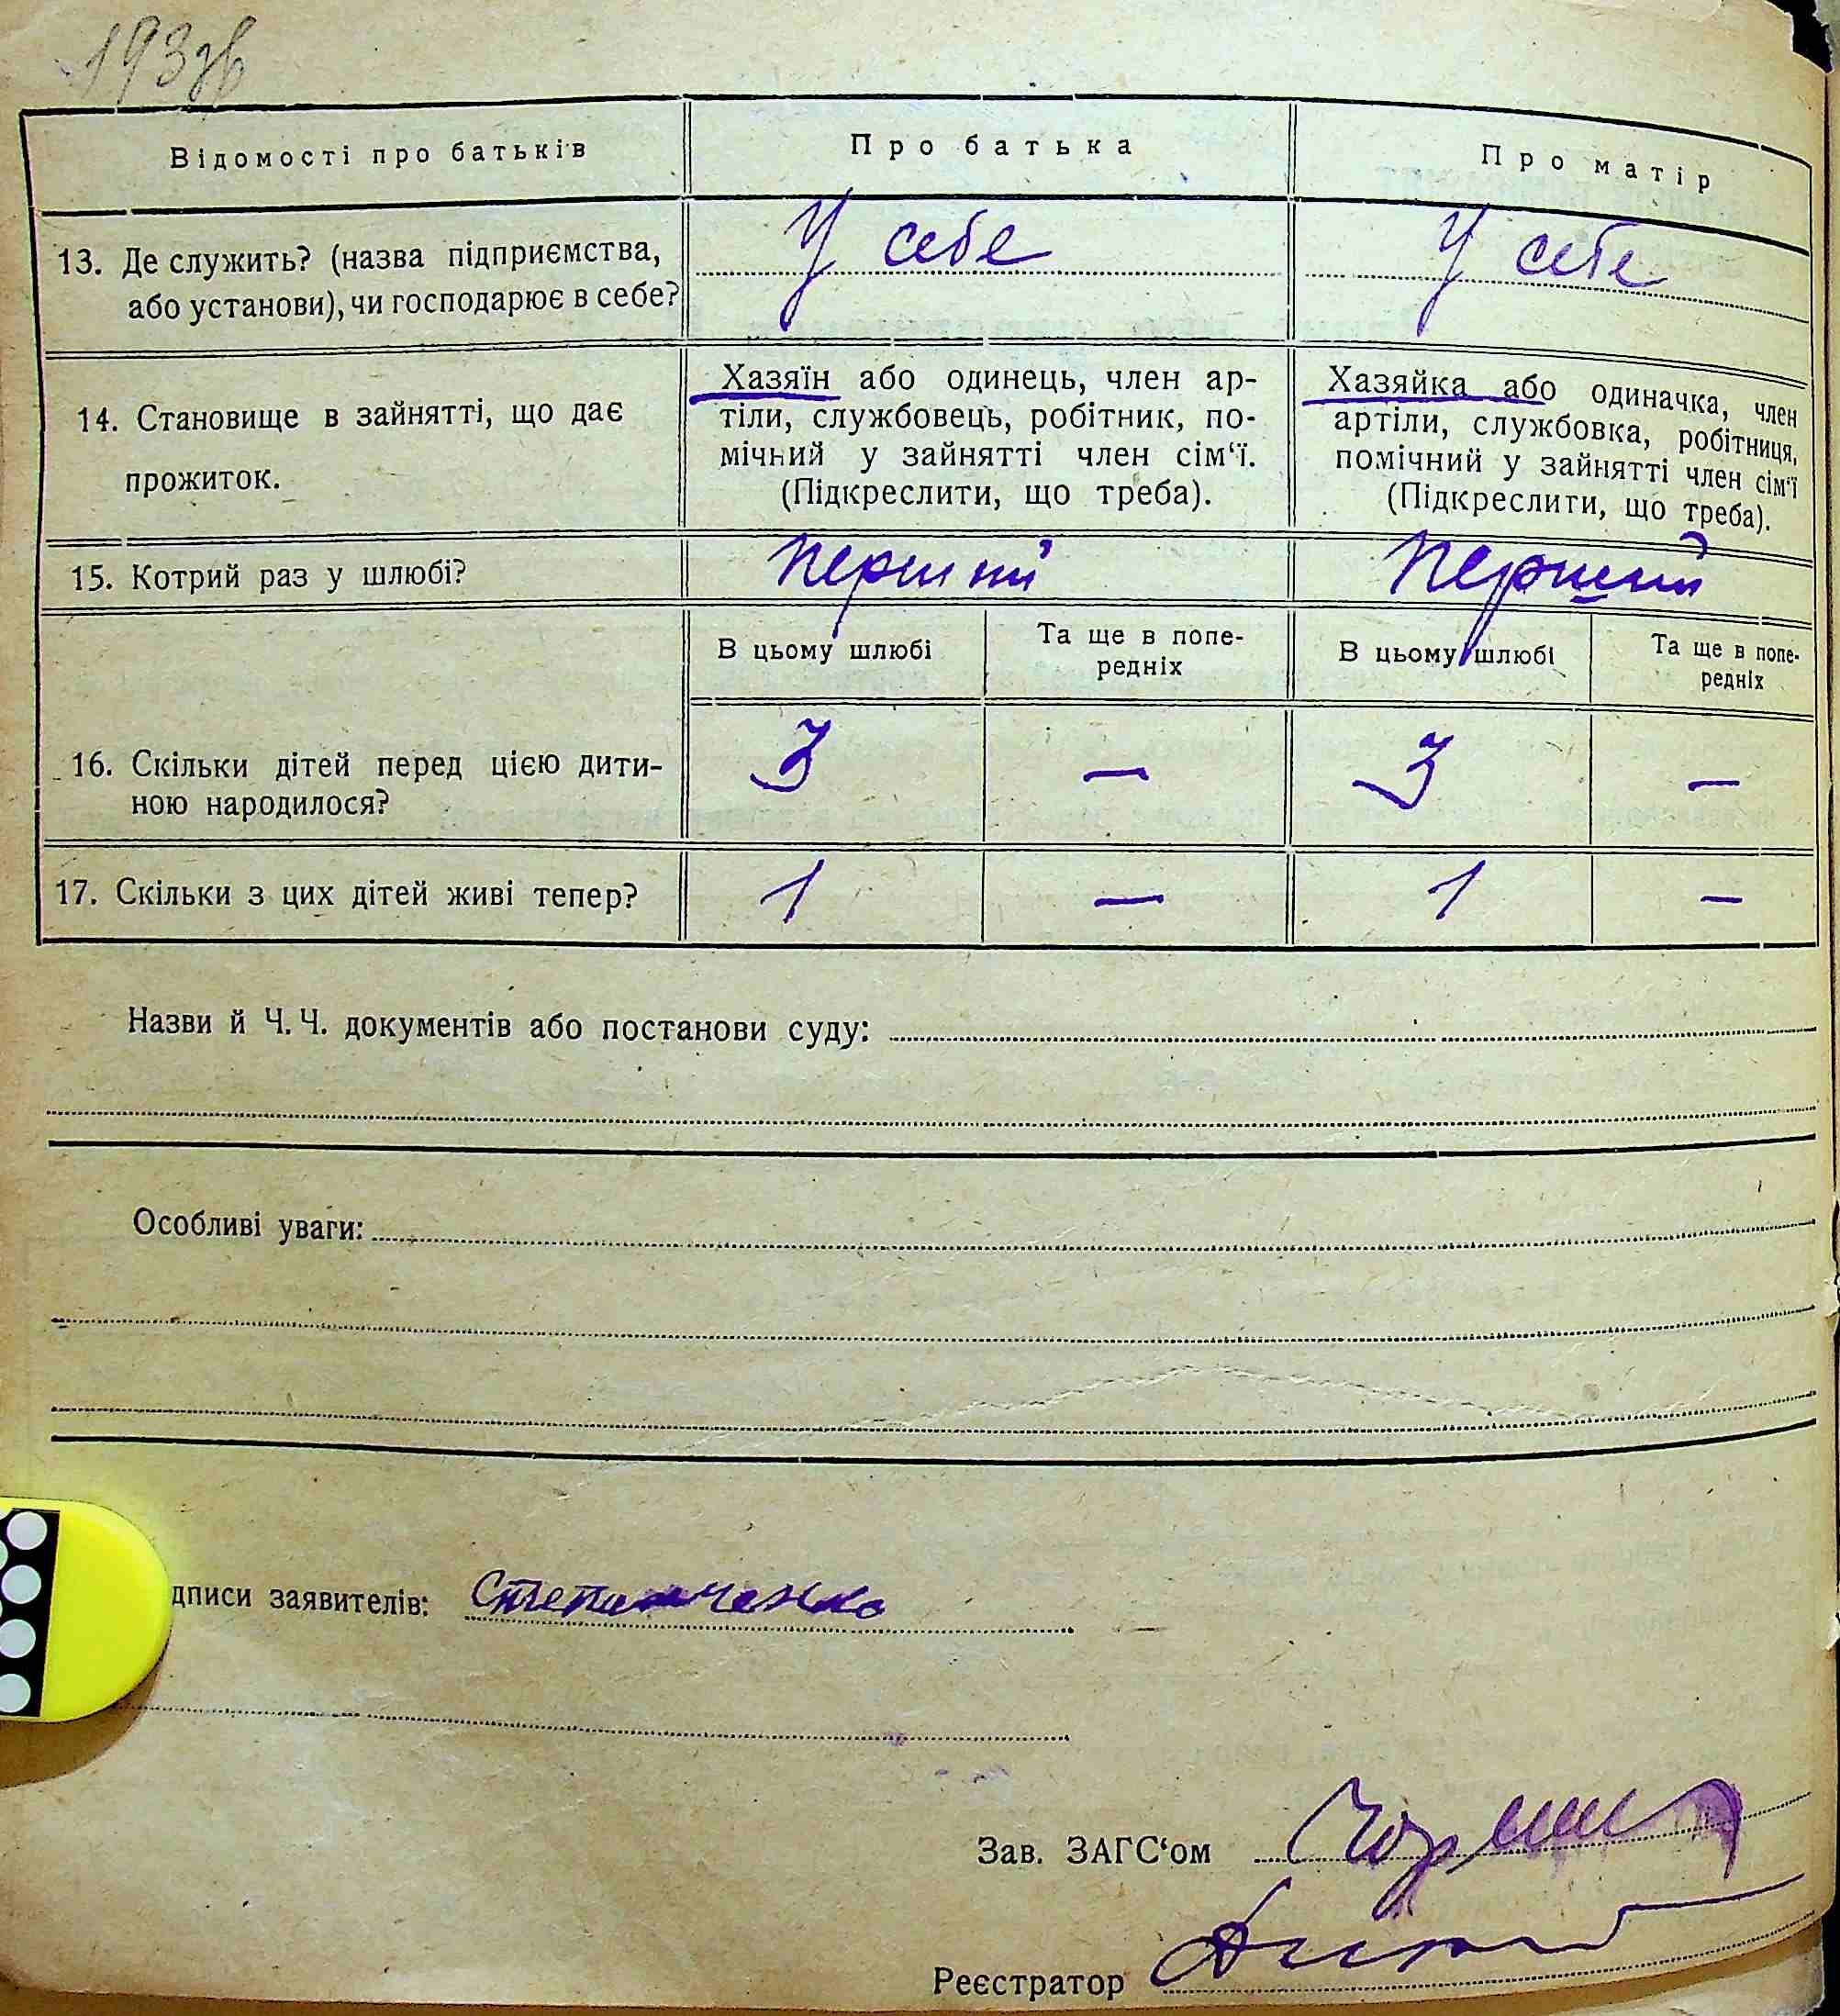 193 зв
Відомості про батьків
Про батька
Про матір
13. Де служить? (назва підприємства,
або установи), чи господарює в себе?
У себе
У себе
14. Становище в зайнятті, що дає
прожиток.
Хазяїн або одинець, член ар-
тіли, службовець, робітник, по-
мічний у зайнятті член сім‘ї.
(Підкреслити, що треба).
Хазяйка або одиначка, член
артіли, службовка, робітниця,
помічний у зайнятті член сім‘ї
(Підкреслити, що треба).
15. Котрий раз у шлюбі?
Перший
Перший
В цьому шлюбі
Та ще в попе-
редніх
В цьому шлюбі
Та ще в попе-
редніх
16. Скільки дітей перед цією дити-
ною народилося?
3 — 3 —
17. Скільки з цих дітей живі тепер?
1 — 1 —
Назви й Ч. Ч. документів або постанови суду:
Особливі уваги:
дписи заявителів: Степанченко
Зав. ЗАГС‘ом
Реєстратор